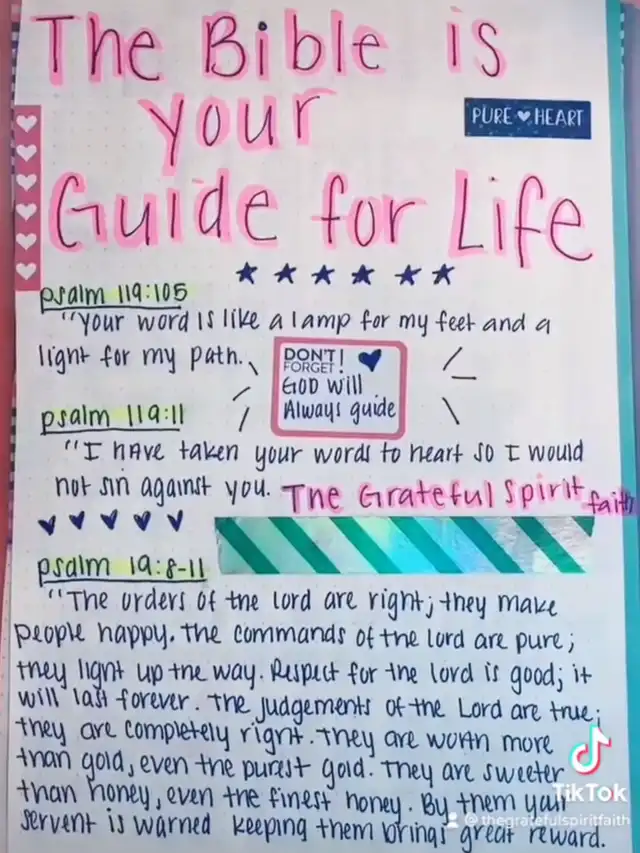 The Bible is
your
Guide for Life
PURE ♥ HEART
psalm 119:105
"Your word is like a lamp for my feet and a
light for my path.
DON'T!
FORGET!
GOD will
Always guide
psalm 119:11
"I have taken your words to heart so I would
not sin against you.
The Grateful Spirit faith
psalm 19:8-11
"The orders of the lord are right; they make
people happy. The commands of the lord are pure;
they light up the way. Respect for the lord is good; it
will last forever. The judgements of the Lord are true;
they are completely right. They are worth more
than gold, even the purest gold. They are sweeter
than honey, even the finest honey. By them your
servent is warned keeping them brings great reward.
TikTok
@thegratefulspiritfaith